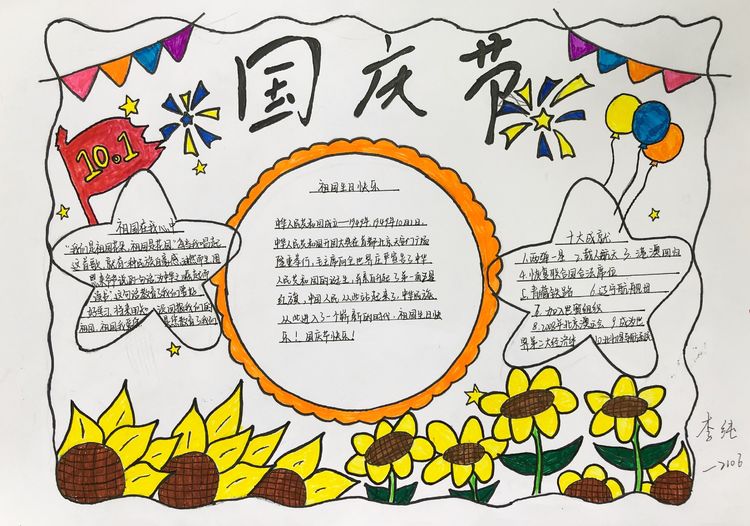 国庆节
10.1
祖国在我心中
"我们是祖国花朵,祖国是花园"
祖国生日快乐
中华人民共和国成立——1949年 1949年10月1日,
中华人民共和国开国大典在首都北京天安门广场
隆重举行,毛主席向全世界庄严宣告了中华
人民共和国的诞生,并亲自升起了第一面五星
红旗,中国人民从此站起来了,中华民族
从此进入了一个崭新的时代,祖国生日快
乐!国庆节快乐!
十大成就
1.两弹一星 2.载人航天 3.港澳回归
4.恢复联合国合法席位
5.青藏铁路 6.辽宁号航母
7.加入世贸组织
8.2008年北京奥运会 9.成为世
界第二大经济体
李纯
一2106